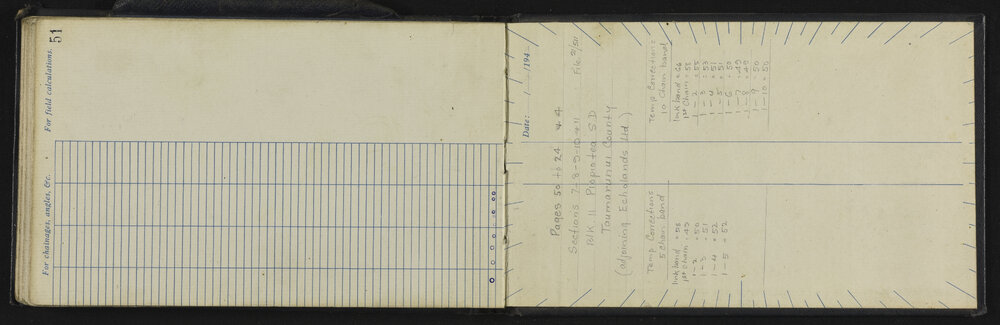 51
For chainages, angles, &c. For field calculations.
Date: / /194
Pages 50 to 24
Sections 7-8-9-10 & 11 File 2/50
Blk 11 Piopiotea SD
Taumarunui County
(adjoining Echolands Ltd.)
Temp Corrections
5 chain band
Ink band .58
1st Chain .49
1-2 .50
1-3 .51
1-4 .52
1-5 .52
Temp Corrections
10 Chain band
Ink band .66
1st Chain .58
1-2 .55
1-3 .53
1-4 .51
1-5 .51
1-6 .50
1-7 .49
1-8 .49
1-9 .50
1-10 .50